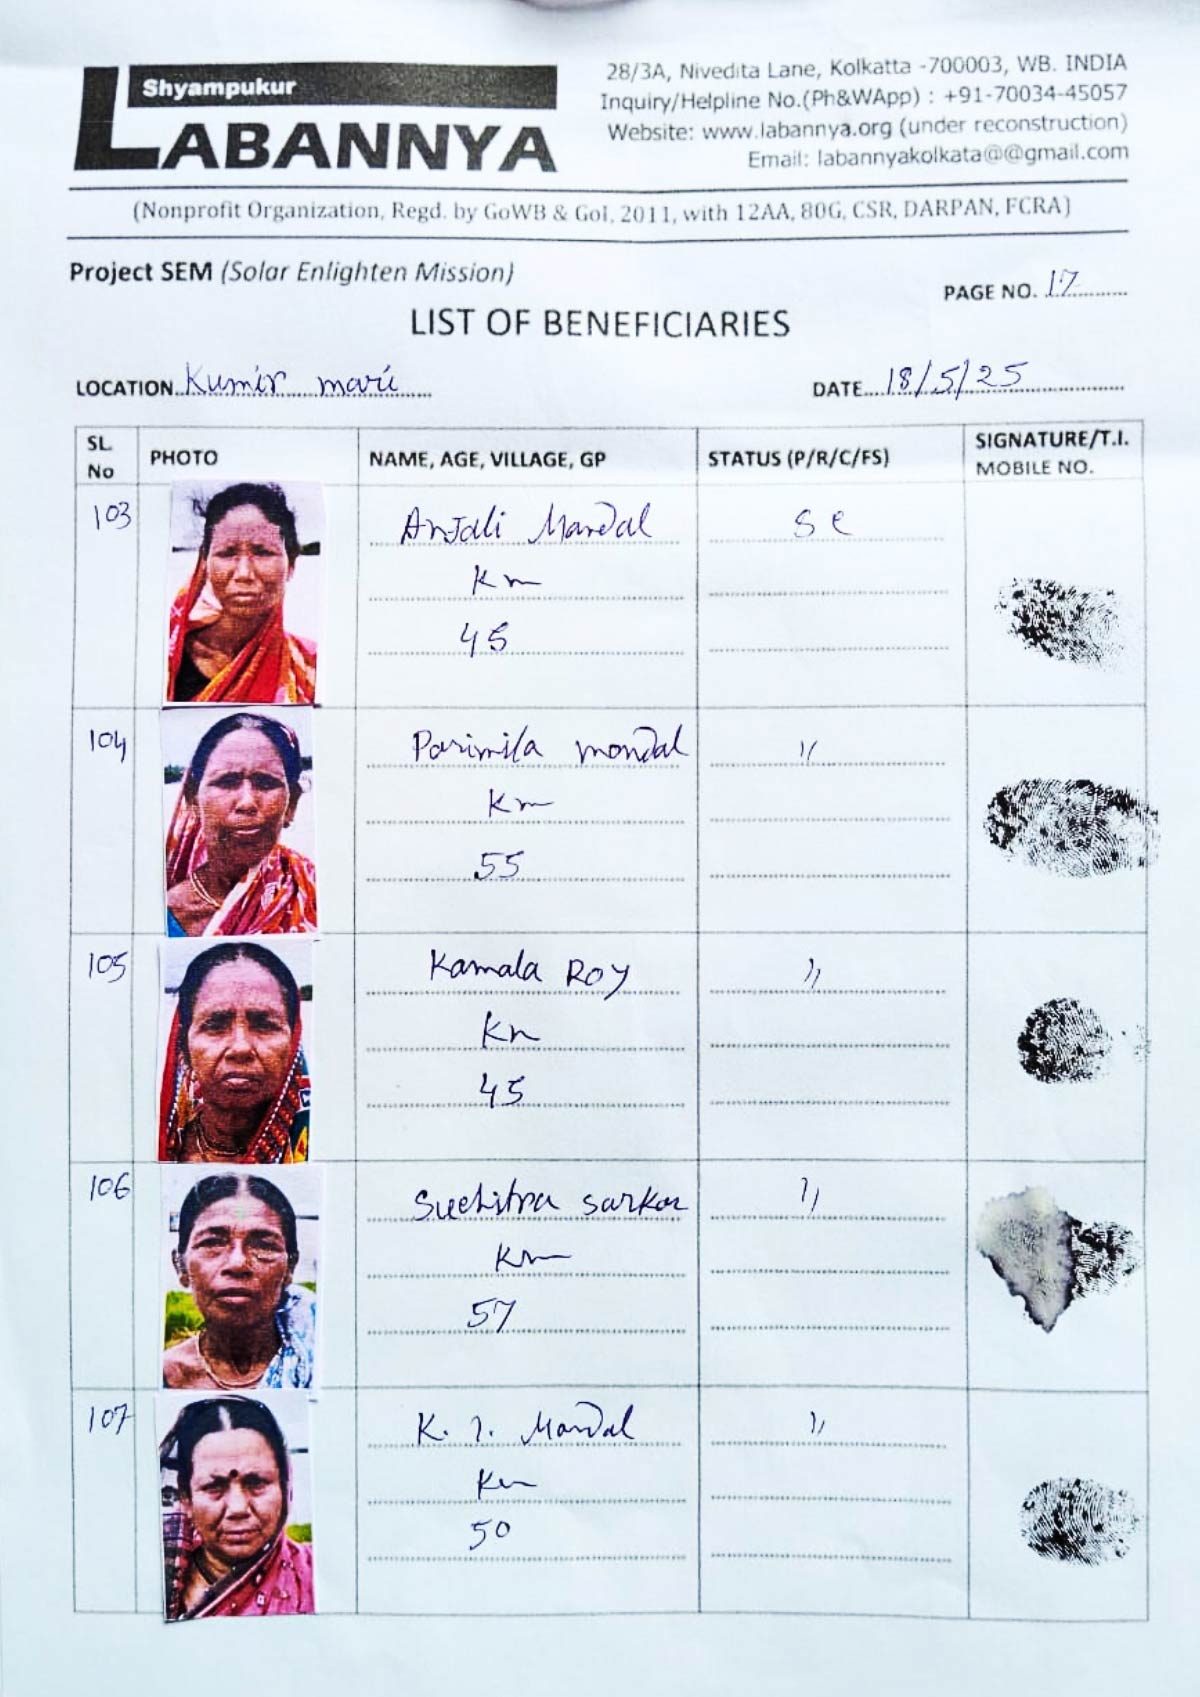 Shyampukur
LABANNYA
28/3A, Nivedita Lane, Kolkatta -700003, WB. INDIA
Inquiry/Helpline No.(Ph&WApp) : +91-70034-45057
Website: www.labannya.org (under reconstruction)
Email: labannyakolkata@@gmail.com
(Nonprofit Organization, Regd. by GoWB & GoI, 2011, with 12AA, 80G, CSR, DARPAN, FCRA)
Project SEM (Solar Enlighten Mission)
PAGE NO. 17
LIST OF BENEFICIARIES
LOCATION Kumir mari
DATE 18/5/25
SL No PHOTO NAME, AGE, VILLAGE, GP STATUS (P/R/C/FS) SIGNATURE/T.I. MOBILE NO.
103 Anjali Mandal
Km
45
104 Parimila mondal 〃
Km
55
105 Kamala Roy 〃
Km
45
106 Suchitra Sarkar 〃
Km
57
107 Mandal 〃
Km
50